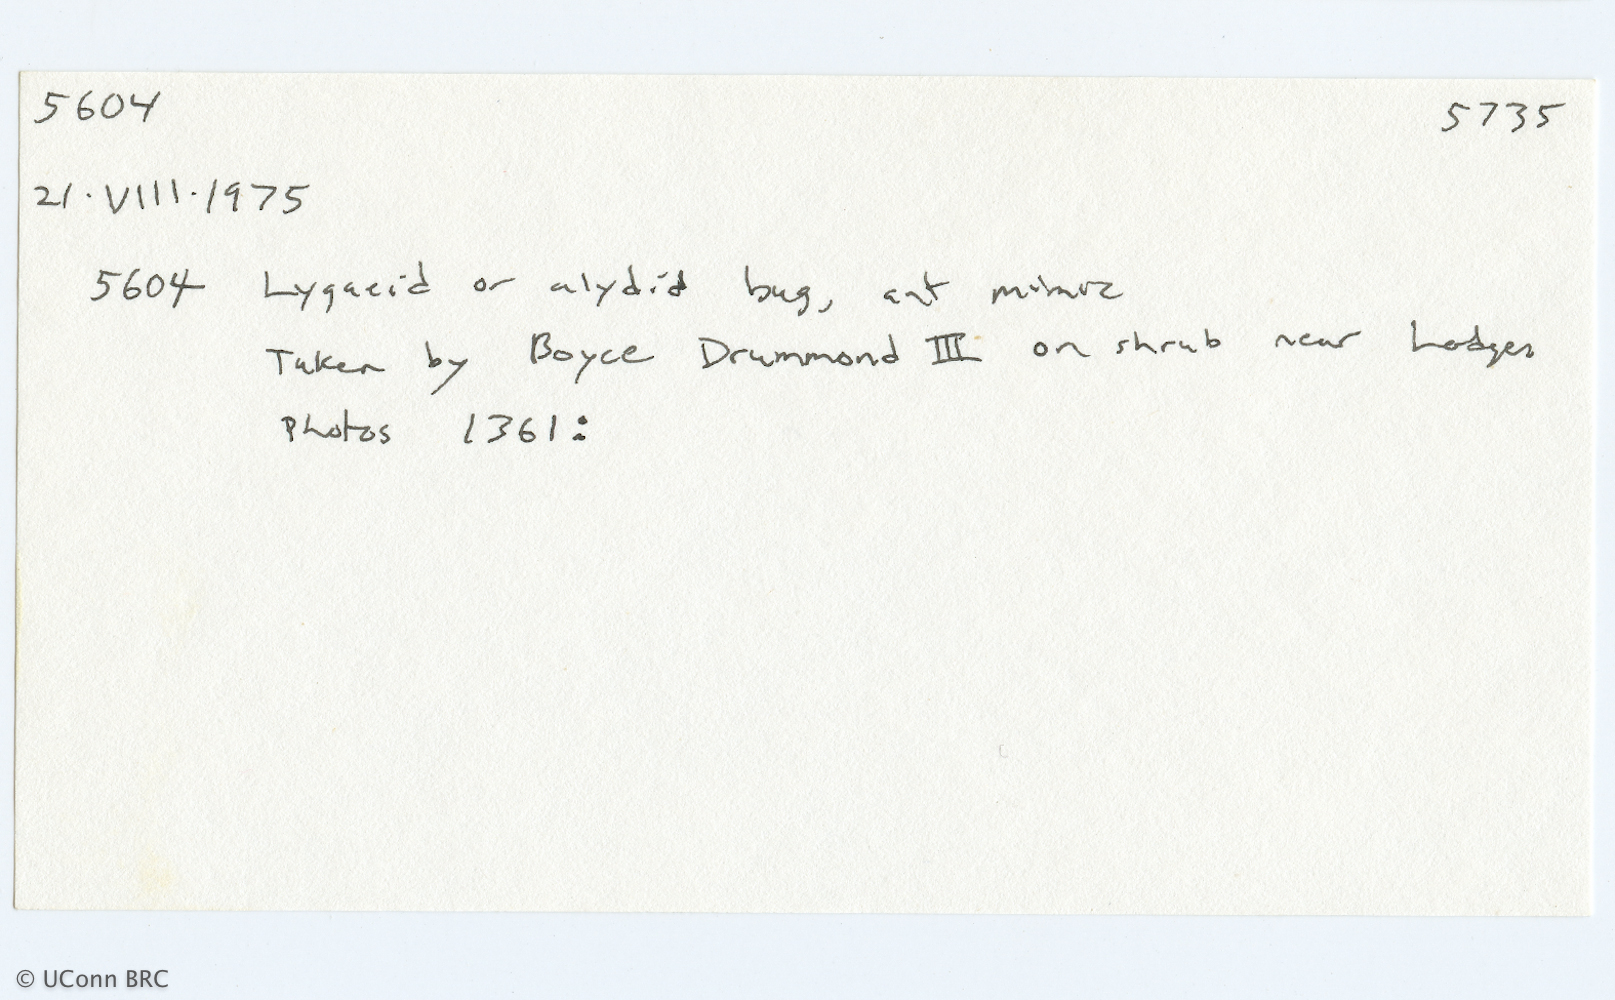 5604 5735
21·VIII·1975
5604 Lygaeid or alydid bug, ant mimic
Taken by Boyce Drummond III on shrub near Lodges
Photos 1361:
© UConn BRC